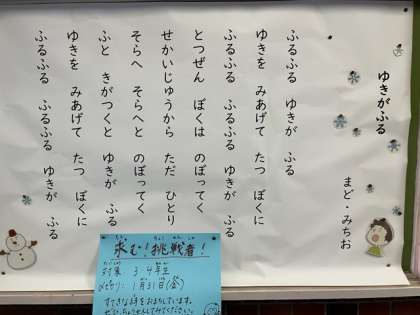 ゆきがふる
まど・みちお
ふるふる ゆきが ふる
ゆきを みあげて たつ ぼくに
ふるふる ふるふる ゆきが ふる
とつぜん ぼくは のぼってく
せかいじゅうから ただ ひとり
そらへ そらへと のぼってく
ふと きがつくと ゆきが ふる
ゆきを みあげて たつ ぼくに
ふるふる ふるふる ゆきが ふる
求む!挑戦者!
対象 3・4年生
〆切り: 1月31日(金)
すてきな詩をおまちしています。